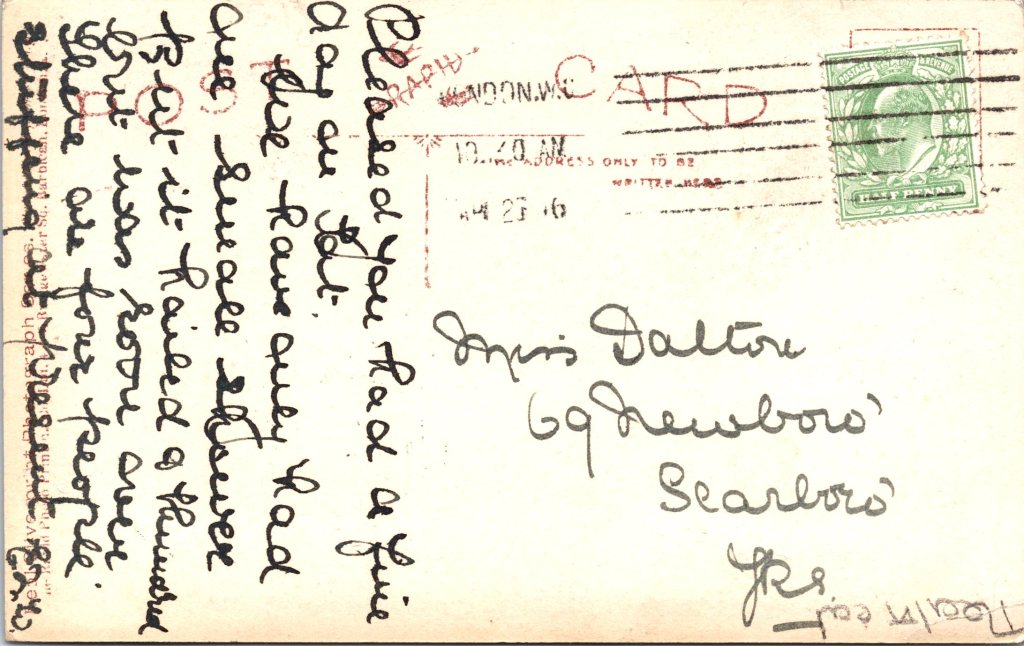 Pleased you had a fine
day on Sat.
We have only had
one small shower
But it hailed & thundred
but was soon over
There are four people
sleeping at present
POST CARD
LONDON.W.
10.40 AM
THE ADDRESS ONLY TO BE
WRITTEN HERE
POSTAGE & REVENUE
HALF PENNY
Miss Dalton
69 Newboro'
Scarboro'
Yks.